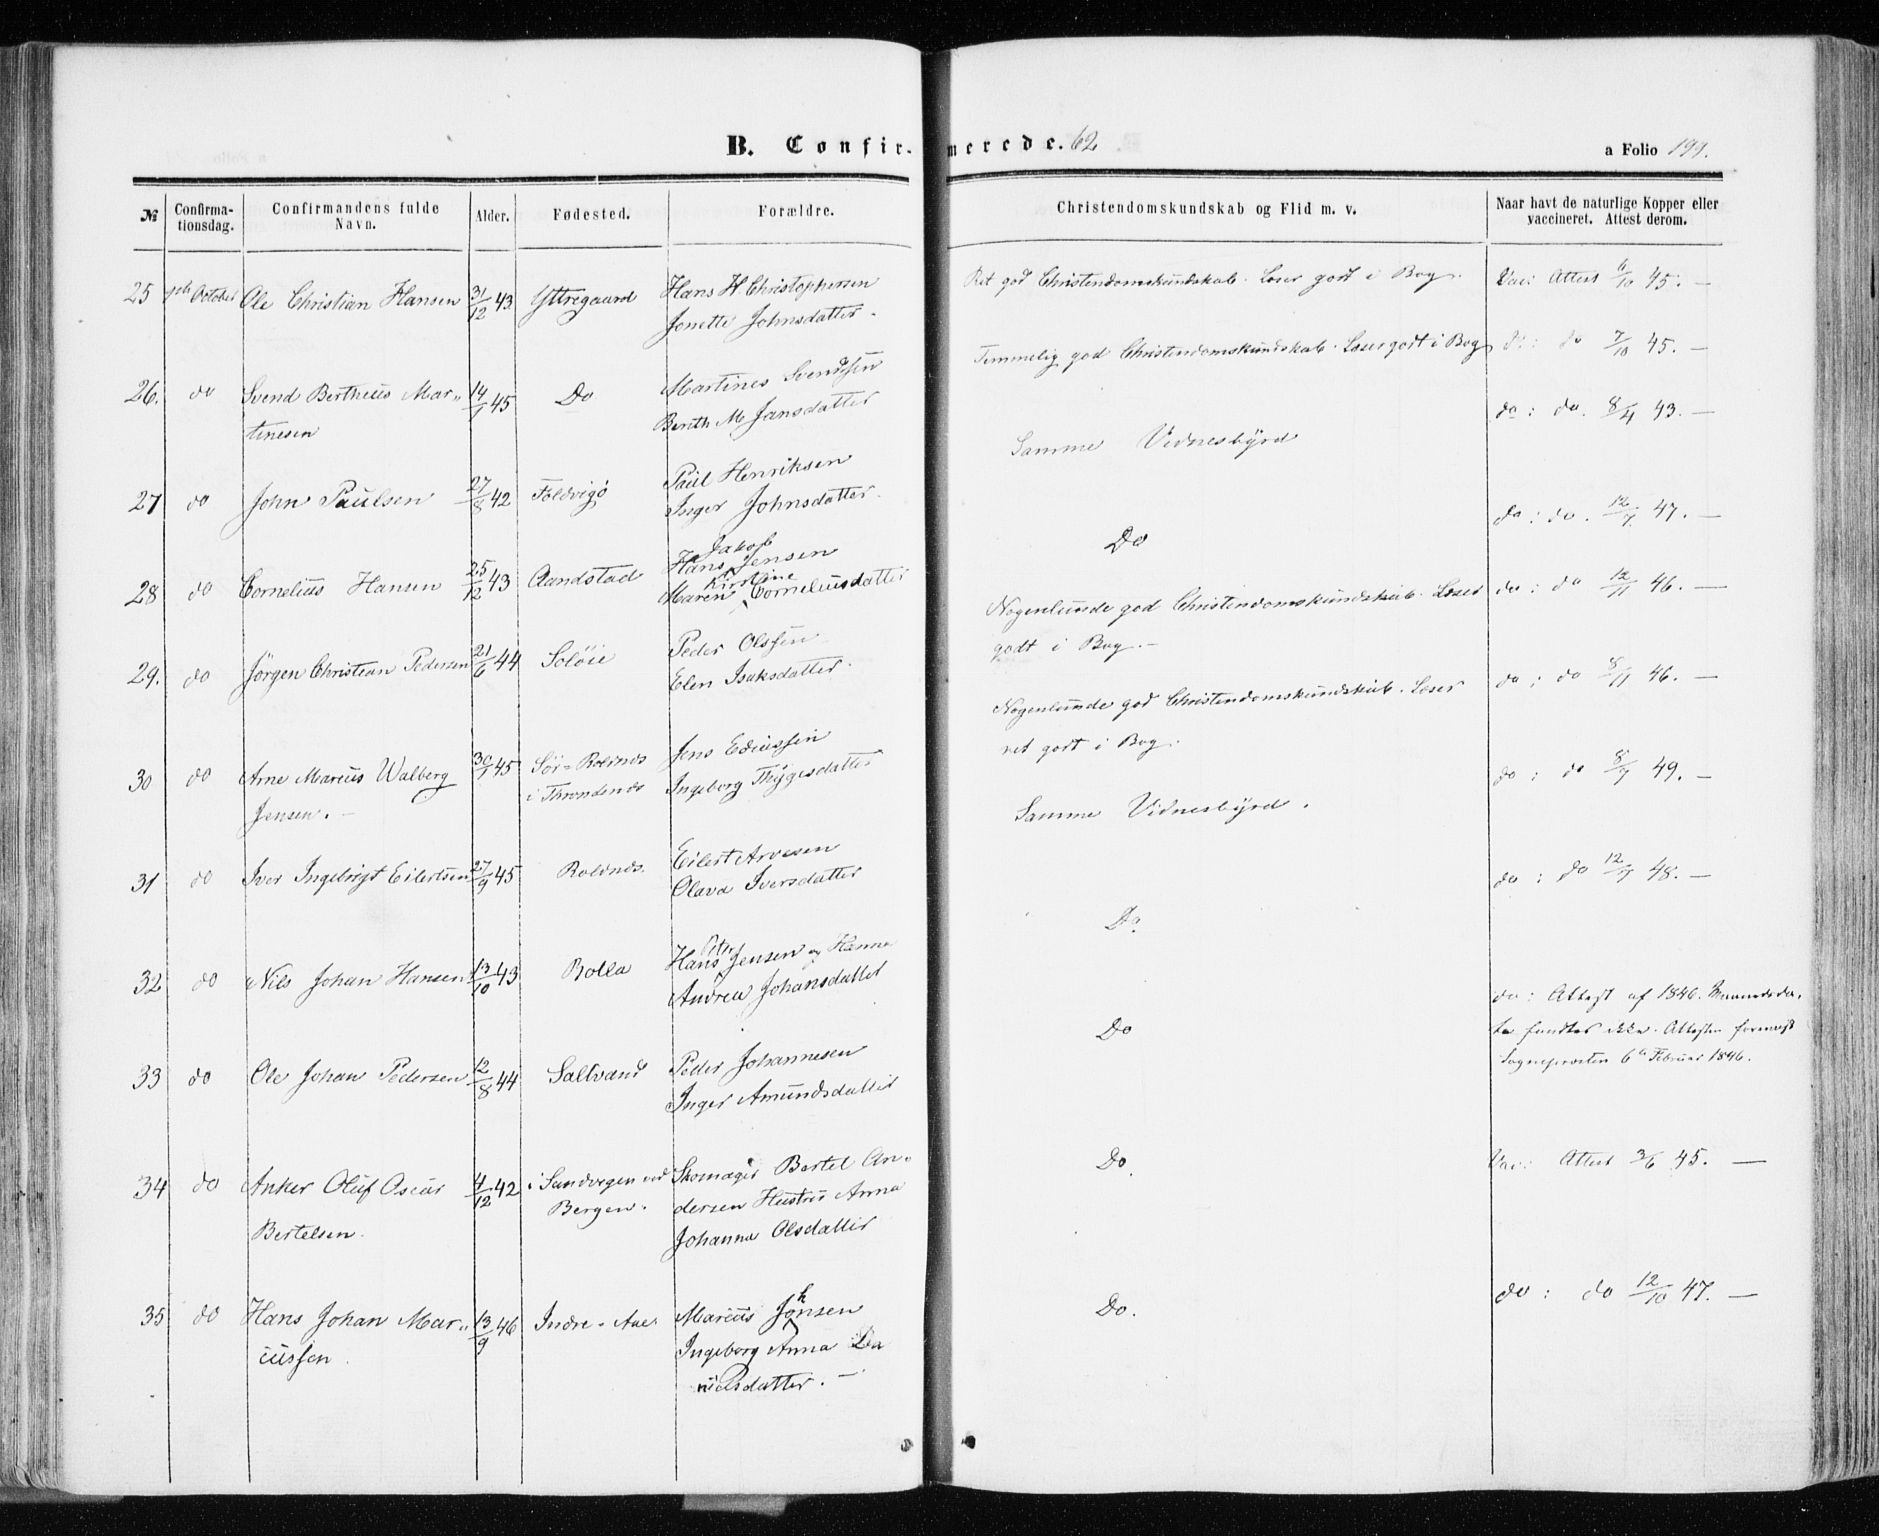 B. Confir-merede. 62
a Folio 199.
№ Confirma-tionsdag. Confirmandens fulde Navn. Alder. Fødested. Forældre. Christendomskundskab og Flid m. v. Naar havt de naturlige Kopper eller vaccineret. Attest derom.
25 October Ole Christian Hansen 31/12 43 Yttregaard Hans H Christophersen
Jonette Johnsdatter.
Ret god Christendomskundskab. Læser godt i Bog. Vac: Attest 6/10 45. —
26. do Svend Bertheus Mar„ 14/1 45 Do Martines Svendsen
tinesen Berith M Jansdatter
Temmelig god Christendomskundskab. Læser godt i Bog do: do 7/10 45. —
27 do John Paulsen 27/8 42 Foldvigø Paul Henriksen
Inger Johnsdatter.
Samme Vidnesbyrd do: do. 8/4 43. —
28 do Cornelius Hansen 25/12 43 Aandstad Hans Jakob Jensen
Maren Kirstine Corneliusdatter
Do do: do. 12/7 47. —
29. do Jørgen Christian Pedersen 21/6 44 Soløie Peder Olssen
Elen Isaksdatter.
Nogenlunde god Christendomskundskab. Læser do: do 12/11 46. —
godt i Bog. —
30 do Arne Marius Walberg 30/1 45 Sør-Rolnæs Jens Ediassen
Jensen. — i Throndenæs Ingeborg Thygesdatter
Nogenlunde god Christendomskundskab. Læser do: do 8/11 46. —
ret godt i Bog.
31 do Iver Ingebrigt Eilertsen 27/9 45 Rolnæs. Eilert Arvesen
Olava Iversdatter
Samme Vidnesbyrd. do: do 8/7 49. —
32 do Nils Johan Hansen 13/10 43 Rolla Hans Peter Jensen og Hanna
Andrea Johansdatter
Do. do: do 12/7 48. —
33 do Ole Johan Pedersen 12/8 44 Saltvand Peder Johannesen
Inger Amundsdatter
Do do: Attest af 1846.
ikke. Attesten
Sognepresten 6te Februar 1846.
34 do Anker Oluf Oscar 4/12 42 i Sandvegen ved Skomager Bertel An-
Bertelsen. Bergen. dersen Hustru Anna
Johanna Olsdatter
Do. Vac: Attest 3/6 45. —
35 do Hans Johan Mar„ 13/9 46 Indre-Aae Marcus Johnsen
cussen. Ingeborg Anna Da
nielsdatter. —
Do. do: do 12/10 47. —